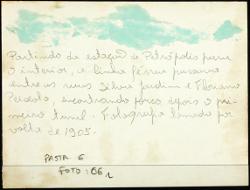 Partindo da estação de Petrópolis para
o interior, a linha férrea passava
entre as ruas Silva Jardim e Floriano
Peixoto, encontrando pouco após o pri-
meiro tunel. Fotografia tomada por
volta de 1905.
PASTA 6
FOTO: 86